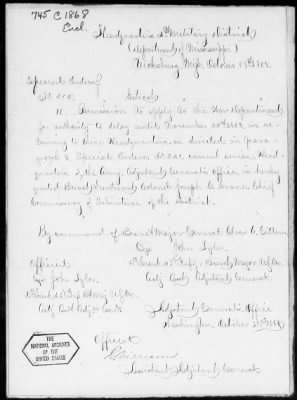 745 C 1868
Encl.
Headquarters 4th Military District
(Department of Mississippi)
Vicksburg Miss. October 15th 1868.
Special Orders
No. 210. Extract
Permission to apply to the War Department
for authority to delay until November 20th 1868, in re-
turning to these Headquarters, as directed in Para-
graph Special Orders No. current series, Head-
quarters of the Army, Adjutant General's office, is hereby
granted Brevet Lieutenant Colonel Joseph G. Crane, Chief
Commissary of Subsistence of the District.
By command of Brevet Major General Alvan C. Gillem
John Tyler.
1st Lieut. 43d Infy Brevet Major
Official Actg Asst Adjutant General
John Tyler
1st Lieut. 43d Infy
Actg Asst Adjt Genl.
Adjutant General's Office
Washington, October 1868
Official
Williams
Assistant Adjutant General
THE
NATIONAL ARCHIVES
OF THE
UNITED STATES